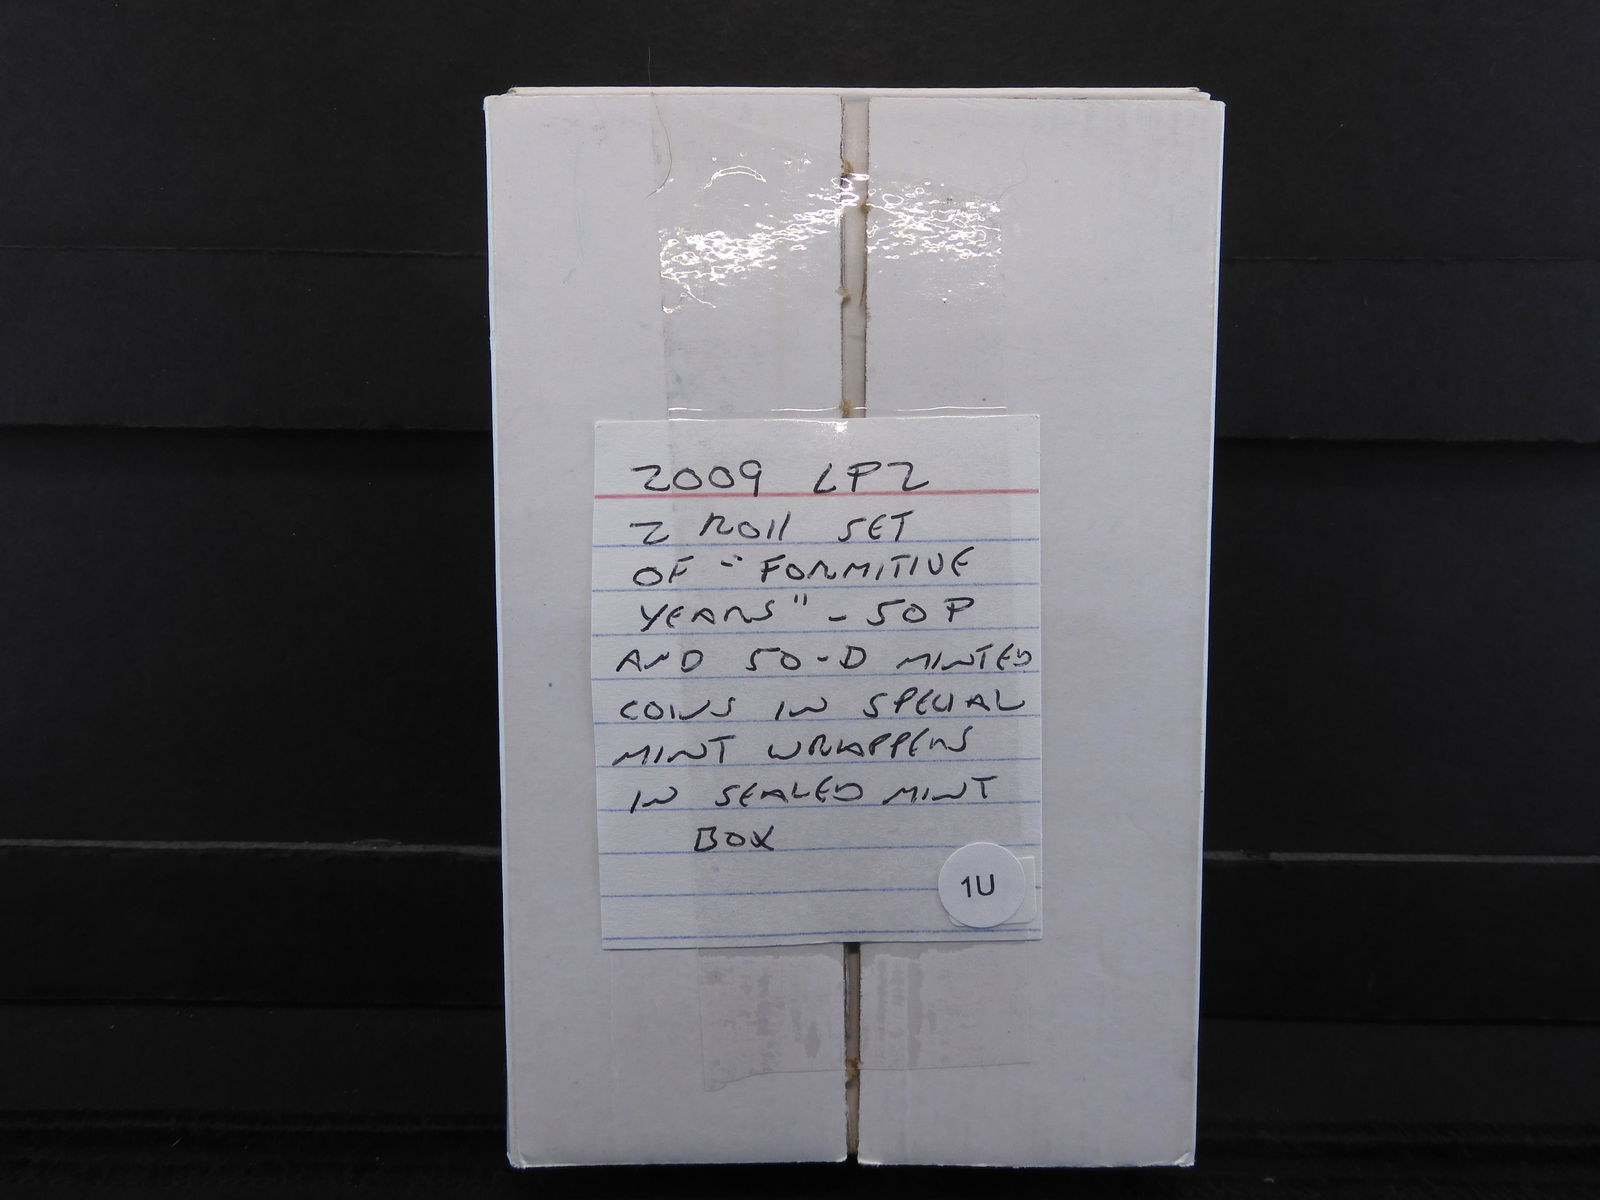 2009 LP2
2 Roll SET
OF "FORMITIVE
YEARS" - 50 P
AND 50-D MINTED
COINS IN SPECIAL
MINT WRAPPERS
IN SEALED MINT
BOX
1U